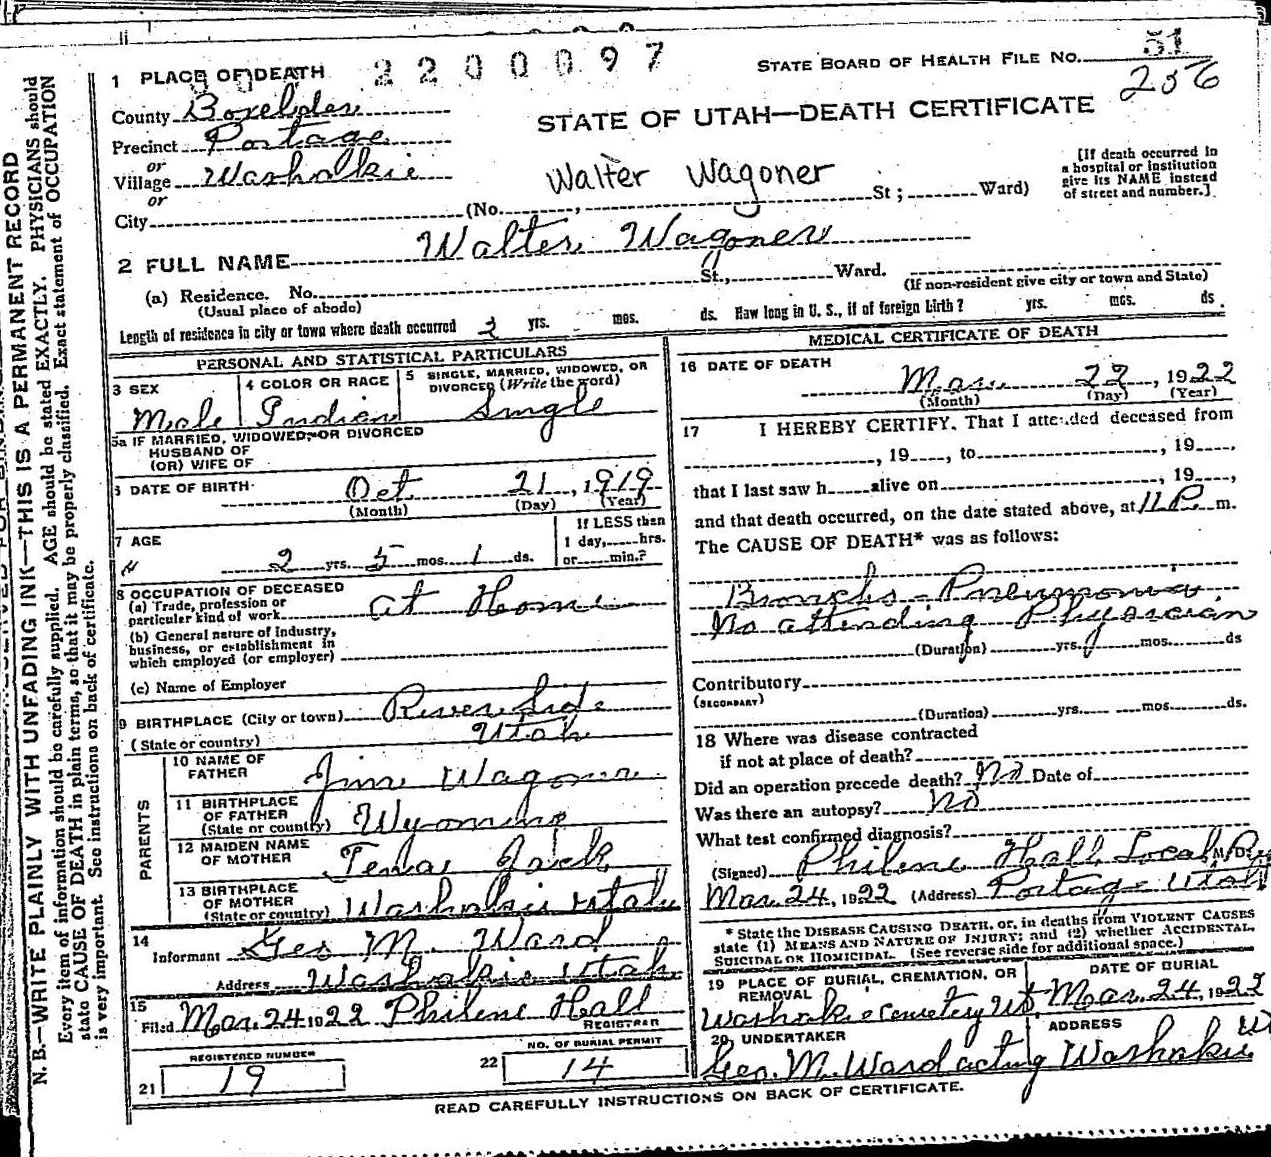 2200097
STATE BOARD OF HEALTH FILE NO. 51
256
STATE OF UTAH—DEATH CERTIFICATE
1 PLACE OF DEATH
County Boxelder
Precinct Portage
or
Village Washakie
or
City (No. , St ; Ward)
Walter Wagoner
[If death occurred in
a hospital or institution
give its NAME instead
of street and number.]
2 FULL NAME Walter Wagoner
(a) Residence. No. St., Ward.
(Usual place of abode)
(If non-resident give city or town and State)
Length of residence in city or town where death occurred 2 yrs. mos. ds. How long in U. S., if of foreign birth? yrs. mos. ds.
PERSONAL AND STATISTICAL PARTICULARS
3 SEX
Male
4 COLOR OR RACE
Indian
5 SINGLE, MARRIED, WIDOWED, OR
DIVORCED (Write the word)
Single
5a IF MARRIED, WIDOWED, OR DIVORCED
HUSBAND OF
(OR) WIFE OF
6 DATE OF BIRTH
Oct 21, 1919
(Month) (Day) (Year)
7 AGE
2 yrs. 5 mos. 1 ds.
If LESS than
1 day, hrs.
or min.?
8 OCCUPATION OF DECEASED
(a) Trade, profession or
particular kind of work at Home
(b) General nature of Industry,
business, or establishment in
which employed (or employer)
(c) Name of Employer
9 BIRTHPLACE (City or town) River Side
(State or country) Utah
PARENTS
10 NAME OF
FATHER Jim Wagoner
11 BIRTHPLACE
OF FATHER
(State or country) Wyoming
12 MAIDEN NAME
OF MOTHER Jack
13 BIRTHPLACE
OF MOTHER
(State or country) Washakie Utah
14
Informant Geo M. Ward
Address Washakie Utah
15
Filed Mar. 24 1922 Philene Hall
REGISTRAR
REGISTERED NUMBER
21 19
NO. OF BURIAL PERMIT
22 14
MEDICAL CERTIFICATE OF DEATH
16 DATE OF DEATH
Mar. 22, 1922
(Month) (Day) (Year)
17 I HEREBY CERTIFY, That I attended deceased from
, 19 , to , 19 ,
that I last saw h alive on , 19 ,
and that death occurred, on the date stated above, at 11 P. m.
The CAUSE OF DEATH* was as follows:
Broncho-Pneumonia
No attending Physician
(Duration) yrs. mos. ds
Contributory
(SECONDARY)
(Duration) yrs. mos. ds.
18 Where was disease contracted
if not at place of death?
Did an operation precede death? No Date of
Was there an autopsy? No
What test confirmed diagnosis?
(Signed) Philene Hall Local M.D.
Mar. 24, 1922 (Address) Portage Utah
* State the DISEASE CAUSING DEATH, or, in deaths from VIOLENT CAUSES
state (1) MEANS AND NATURE OF INJURY; and (2) whether ACCIDENTAL,
SUICIDAL OR HOMICIDAL. (See reverse side for additional space.)
19 PLACE OF BURIAL, CREMATION, OR
REMOVAL
Washakie Cemetery Ut.
DATE OF BURIAL
Mar. 24, 1922
20 UNDERTAKER
Geo. M. Ward acting
ADDRESS
Washakie Ut
READ CAREFULLY INSTRUCTIONS ON BACK OF CERTIFICATE.
N. B.—WRITE PLAINLY WITH UNFADING INK—THIS IS A PERMANENT RECORD
Every item of information should be carefully supplied. AGE should be stated EXACTLY. PHYSICIANS should
state CAUSE OF DEATH in plain terms, so that it may be properly classified. Exact statement of OCCUPATION
is very important. See instructions on back of certificate.